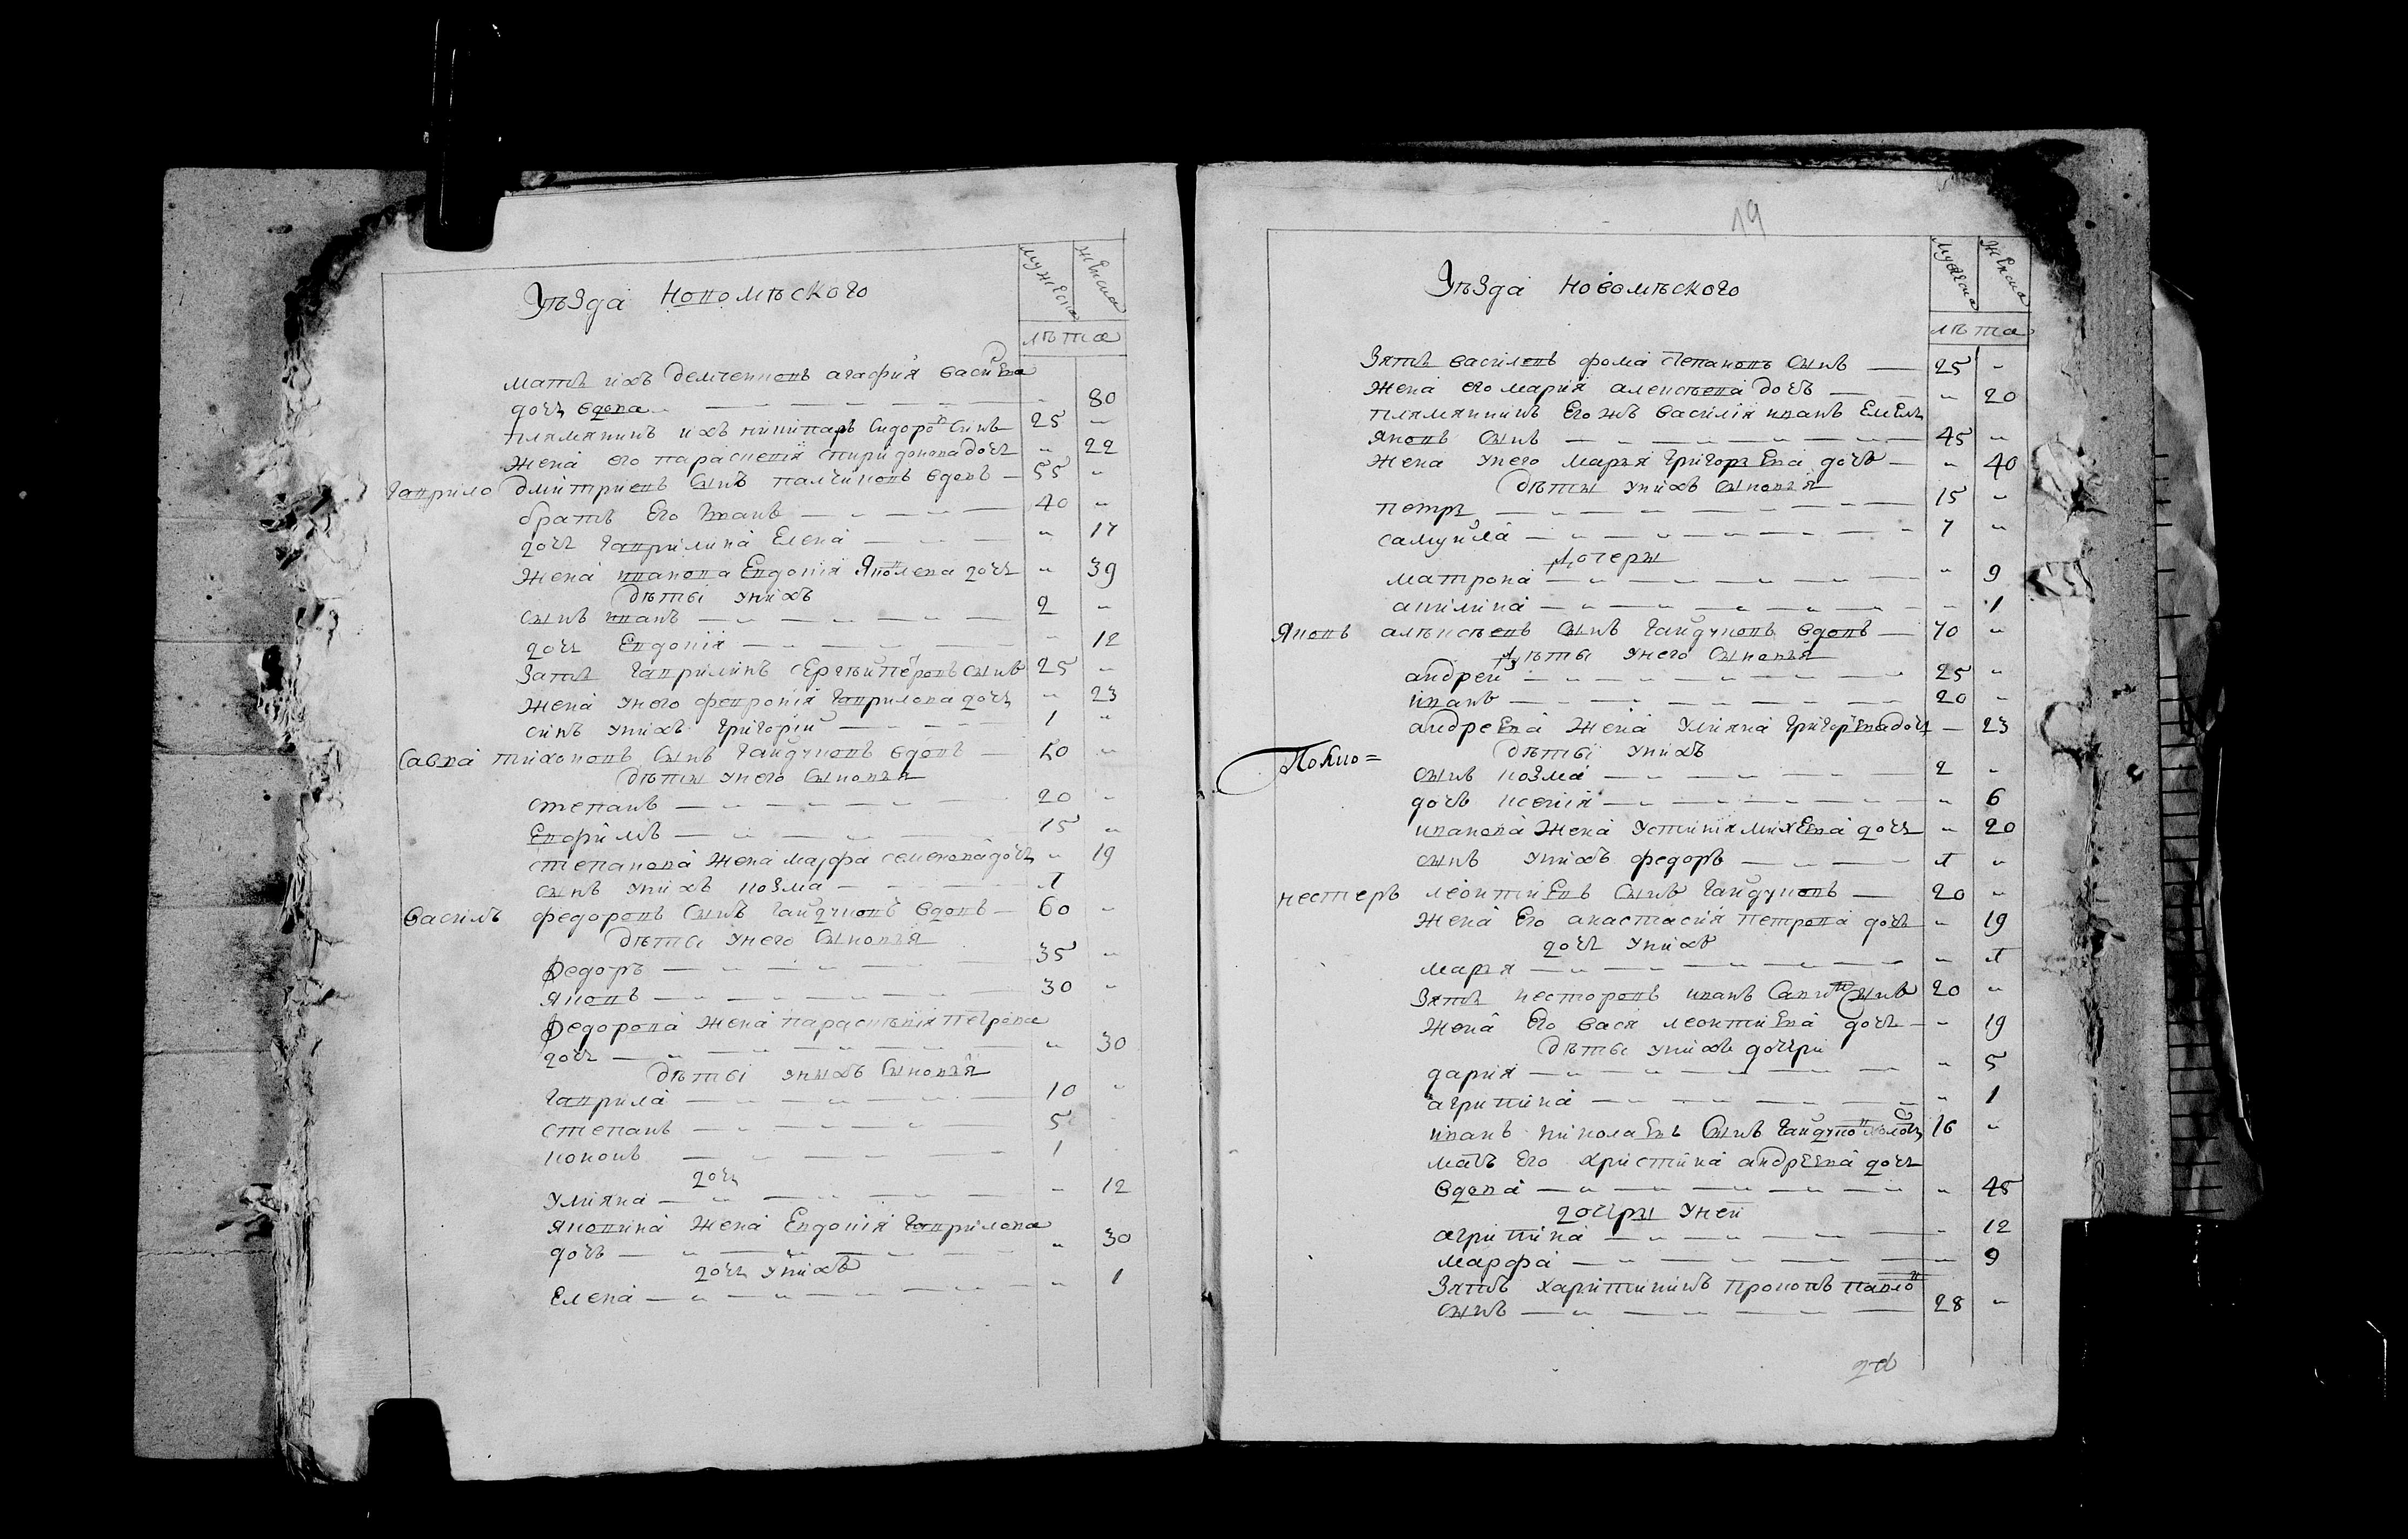 Уѣзда новомѣского
мужеска
женска
лѣта
мать ихъ демченковъ агафия васи Ева
дочь вдова 80
племяникъ ихъ никипаръ Сидоровъ Синъ 25
жена его параскевія спиридонова дочь 22
гаврило дмитриевъ сынъ палчиковъ вдовъ 55
братъ его Іванъ 40
дочь гаврилина Елена 17
жена иванова Евдокія Яковлева дочь 39
дѣти унихъ
сынъ иванъ 2
дочь Евдокія 12
Зать гаврилинъ сергѣй петровъ сынъ 25
жена унего февронія гаврилова дочь 23
синъ унихъ григорій 1
Савка тихоновъ сынъ гайдуковъ вдовъ
дѣты унего сыновья
степанъ 20
Евфимъ 15
степанова жена марфа семенова дочь 19
сынъ унихъ козма
василь федоровъ сынъ гайдуковъ вдовъ 60
дѣты унего сыновья
федоръ 35
яковъ 30
федорова жена параскѣвія петрова
дочь 30
дѣты унихъ сыновья
гаврила 10
степанъ 5
кононъ 1
дочь
улияна 12
яковина жена Евдокія гаврилова
дочь 30
дочь унихъ
Елена 1
19
Уѣзда новомѣского
мужеска
женска
лѣта
Зять василевъ фома степановъ сынъ 25
жена его мария алексѣева дочь 20
племянникъ Его жъ василія иванъ Емель
яновъ сынъ 45
жена унего маръя григоръ Ева дочь 40
дѣты унихъ сыновья
петръ 15
самуила 7
дочеры
матрона 9
акилина 1
яковъ алѣксѣевъ сынъ гайдуковъ вдовъ 70
дѣты унего сыновья
андрей 25
иванъ 20
андреева жена улияна григор Ева дочь 23
дѣты унихъ
сынъ козма 2
дочь ксенія 6
иванова жена устинія мих Ева дочь 20
сынъ унихъ федоръ
нестеръ леонтиевъ сынъ гайдуковъ 20
жена Его анастасия петрова дочь 19
дочь унихъ
маръя
Зять несторовъ иванъ сынъ 20
жена Его вася леонтиева дочь 19
дѣты унихъ дочери
дария 5
агрипина 1
иванъ николаевъ сынъ гайдуковъ 16
мать его христина андреева дочь
вдова 45
дочеры уней
агрипина 12
марфа 9
Зять харитининъ прокопъ павловъ
сынъ 28